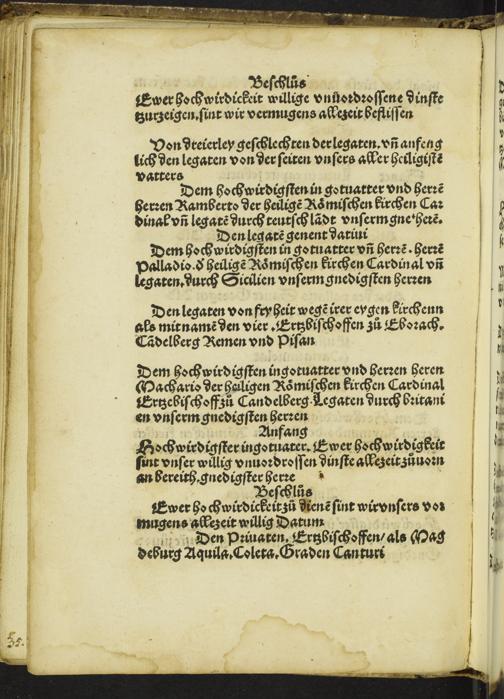 Beschlūs
Ewer hochwirdickeit willige vnuordrossene dinste
tzurzeigen, sint wir vermugens allezeit beflissen
Von dreierley geschlechten der legaten, vn̄ anfeng
lich den legaten von der seiten vnsers aller heiligistē
vatters
Dem hochwirdigsten in gotuatter vnd herrē
herren Ramberto der heiligē Rőmischen kirchen Car
dinal vn̄ legatē durch teutsch lādt vnserm gneˀ herē.
Den legatē genent datiui
Dem hochwirdigsten in gotuatter vn̄ herzē. herrē
Palladio. d̕ heiligē Rőmischen kirchen Cardinal vn̄
legaten, durch Sicilien vnserm gnedigsten herren
Den legaten von fryheit wegē irer eygen kirchenn
als mit namē den vier. Ertzbischoffen zů Eborach.
Cādelberg Remen vnd Pisan
Dem hochwirdigsten ingotuatter vnd herzen heren
Machario der heiligen Rőmischen kirchen Cardinal
Ertzebischoff zů Candelberg. Legaten durch britani
en vnserm gnedigsten herren
Anfang
Hochwirdigster ingotuater. Ewer hochwirdigkeit
sint vnser willig vnuordrossen dinste allezeit zůuorn
an bereith, gnedigster herre
Beschlūs
Ewer hochwirdickeit zů dienē sint wir vnsers vor
mugens allezeit willig Datum
Den Priuaten. Ertzbischoffen/ als Mag
deburg Aquila. Coleta. Graden Canturi
35.